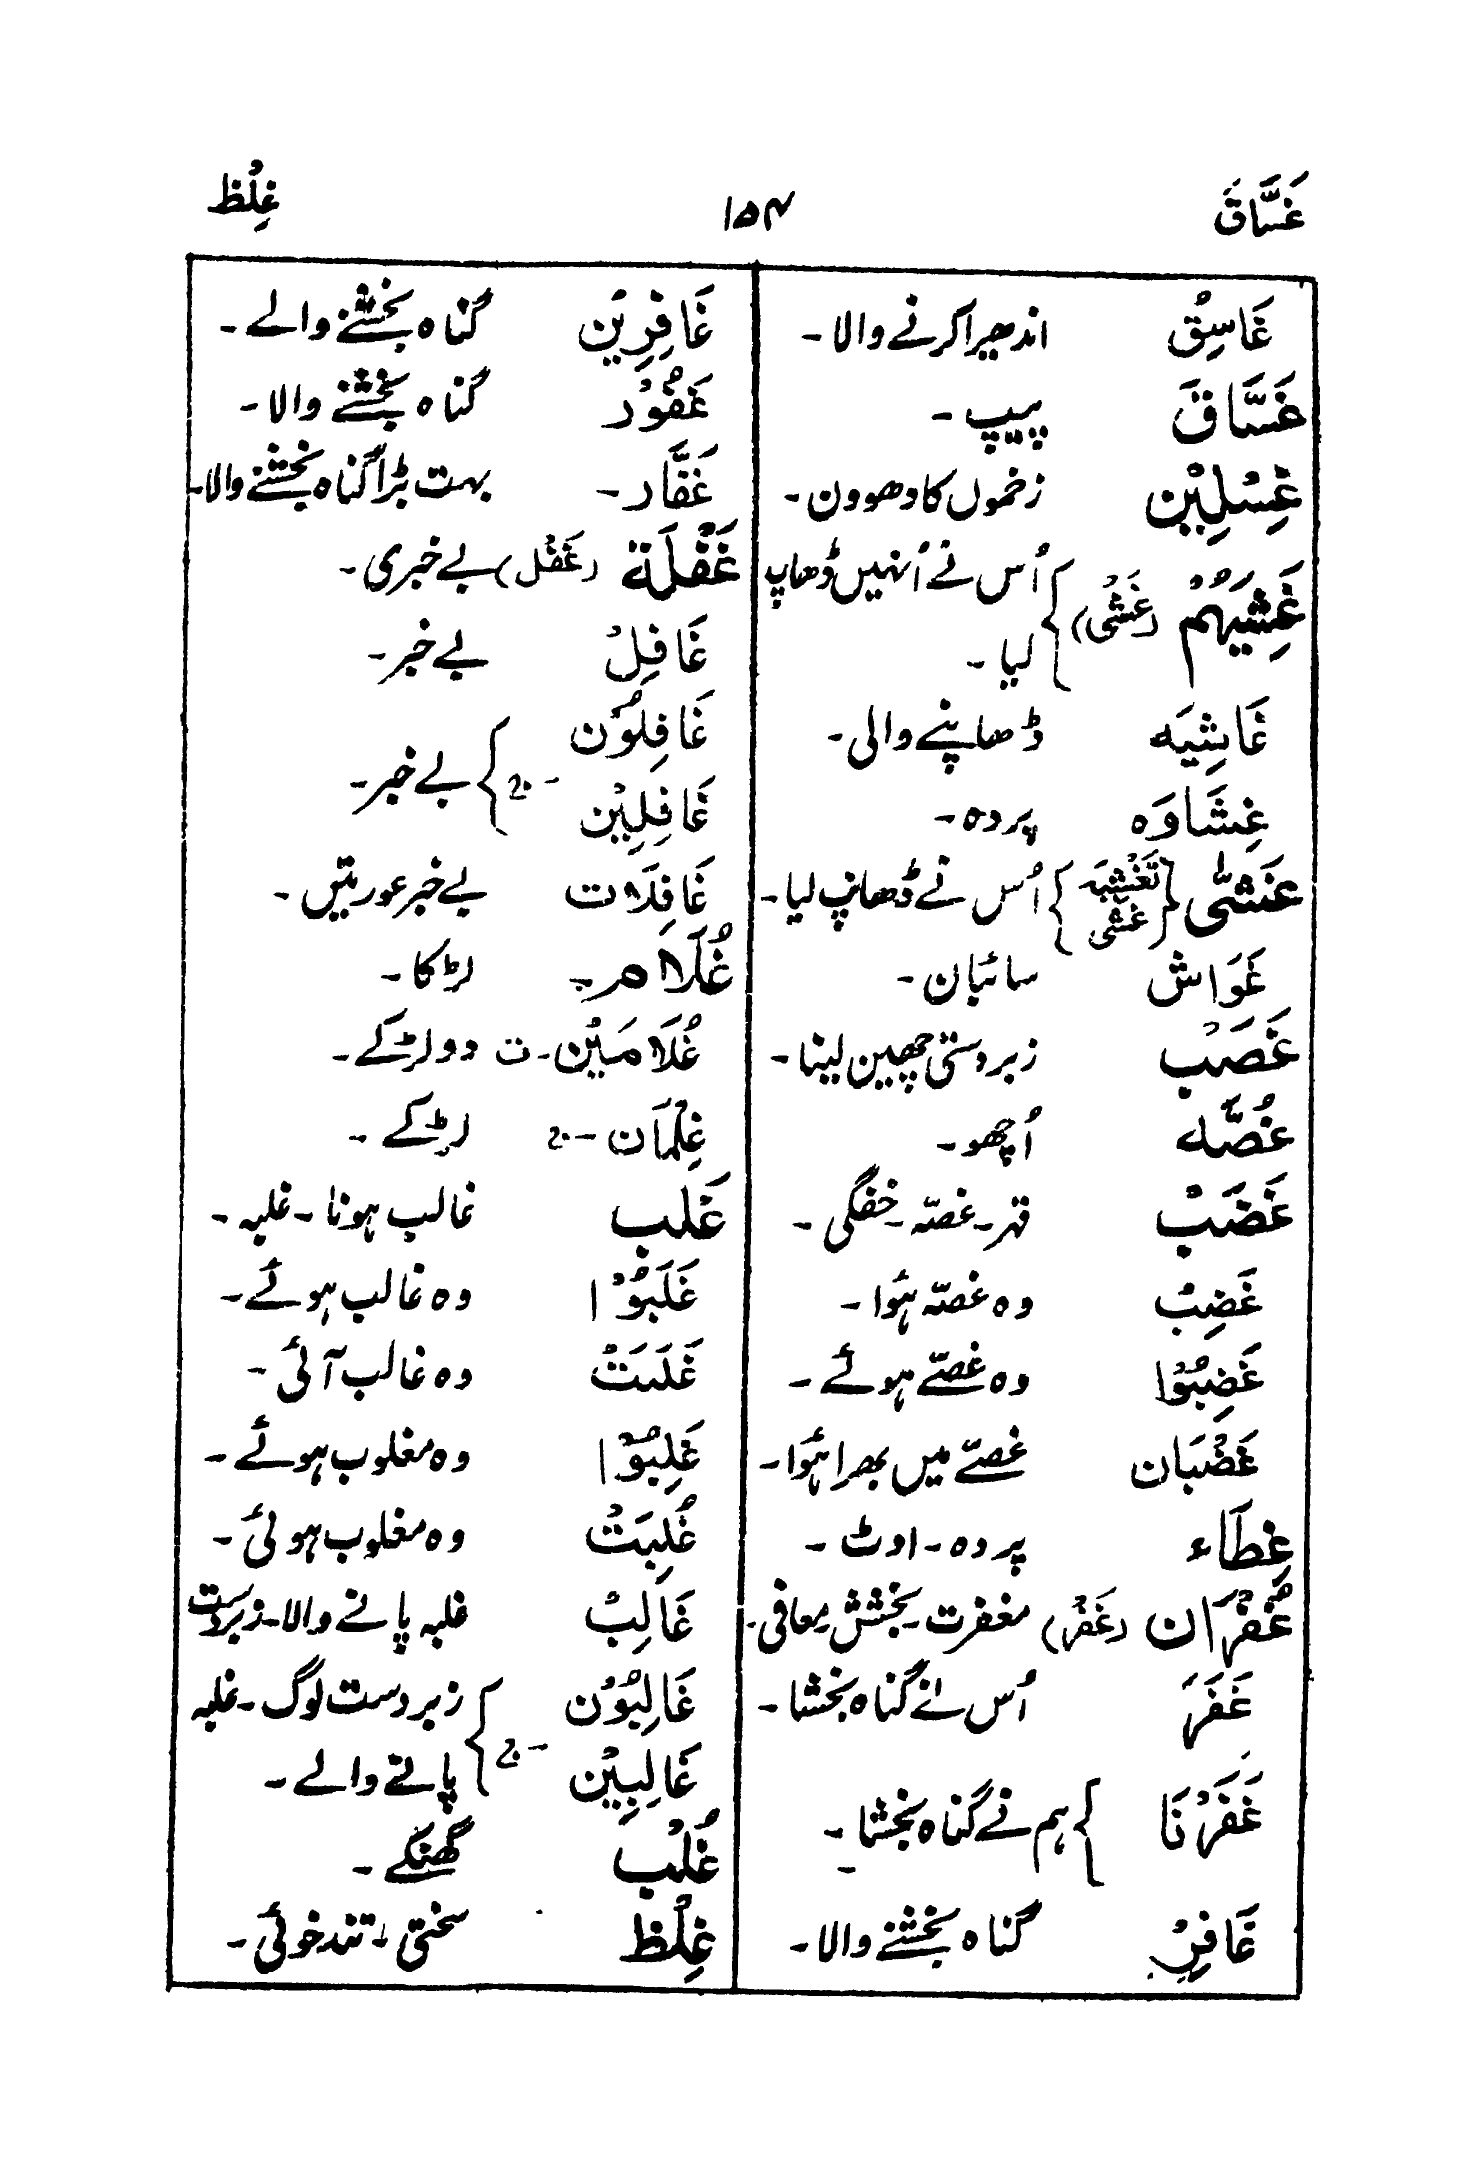 غَسَّاقَ ۱۵۴ غِلْظ
غَاسِقُ اندھیرا کرنے والا۔
غَسَّاقَ پیپ۔
غِسْلِیْن زخموں کا دھوون۔
غَشِیَہُمْ (غَشْی) اُس نے اُنہیں ڈھاپ
لیا۔
غَاشِیَہ ڈھاپنے والی۔
غِشَاوَہ پردہ۔
غَشّٰی تَغْشِیَہ غَشْی اُس نے ڈھانپ لیا۔
غَوَاش سائبان۔
غَصْب زبردستی چھین لینا۔
غُصَّہ اُچھو۔
غَضَبْ قہر۔ غصّہ۔ خفگی۔
غَضِبَ وہ غصّہ ہؤا۔
غَضِبُوْا وہ غصّے ہوئے۔
غَضْبَان غصّے میں بھرا ہؤا۔
غِطَاء پردہ۔ اوٹ۔
غُفْرَان (غَفْر) مغفرت۔ بخشش معافی۔
غَفَرَ اُس نے گناہ بخشا۔
غَفَرْنَا ہم نے گناہ بخشا۔
غَافِرْ گناہ بخشنے والا۔
غَافِرِیْن گناہ بخشنے والے۔
غَفُوْر گناہ بخشنے والا۔
غَفَّار۔ بہت بڑا گناہ بخشنے والا۔
غَفْلَة (غَفْل) بے خبری۔
غَافِلْ بے خبر۔
غَافِلُوْن
غَافِلِیْن ۔ج بے خبر۔
غَافِلَات بے خبر عورتیں۔
غُلَام۔ لڑکا۔
غُلَامَیْن۔ت دو لڑکے۔
غِلْمَان۔ج لڑکے۔
غَلْب غالب ہونا۔ غلبہ۔
غَلَبُوْا وہ غالب ہوئے۔
غَلَبَتْ وہ غالب آئی۔
غُلِبُوْا وہ مغلوب ہوئے۔
غُلِبَتْ وہ مغلوب ہوئی۔
غَالِبْ غلبہ پانے والا۔ زبردست
غَالِبُوْن زبردست لوگ۔ غلبہ
غَالِبِیْن ۔ج پانے والے۔
غُلْب گھنکے۔
غِلْظ سختی۔ تندخوئی۔